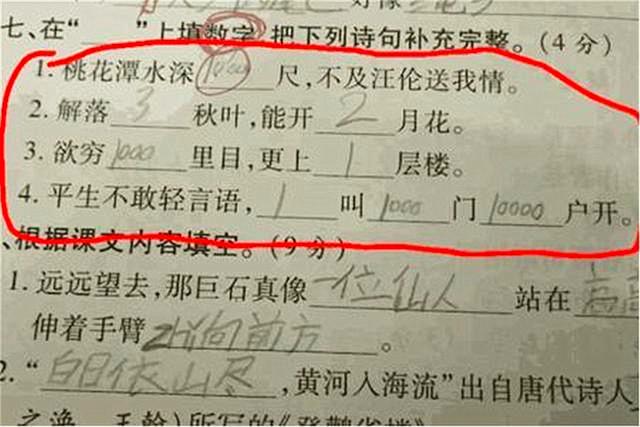 七、在“____”上填数字,把下列诗句补充完整。(4分)
1. 桃花潭水深1000尺,不及汪伦送我情。
2. 解落3秋叶,能开2月花。
3. 欲穷1000里目,更上1层楼。
4. 平生不敢轻言语,1叫1000门10000户开。
、根据课文内容填空。(9分)
1. 远远望去,那巨石真像一位仙人站在高高
伸着手臂指向前方。
2. “白日依山尽,黄河入海流”出自唐代诗人
之涣、王翰)所写的《登鹳雀楼》